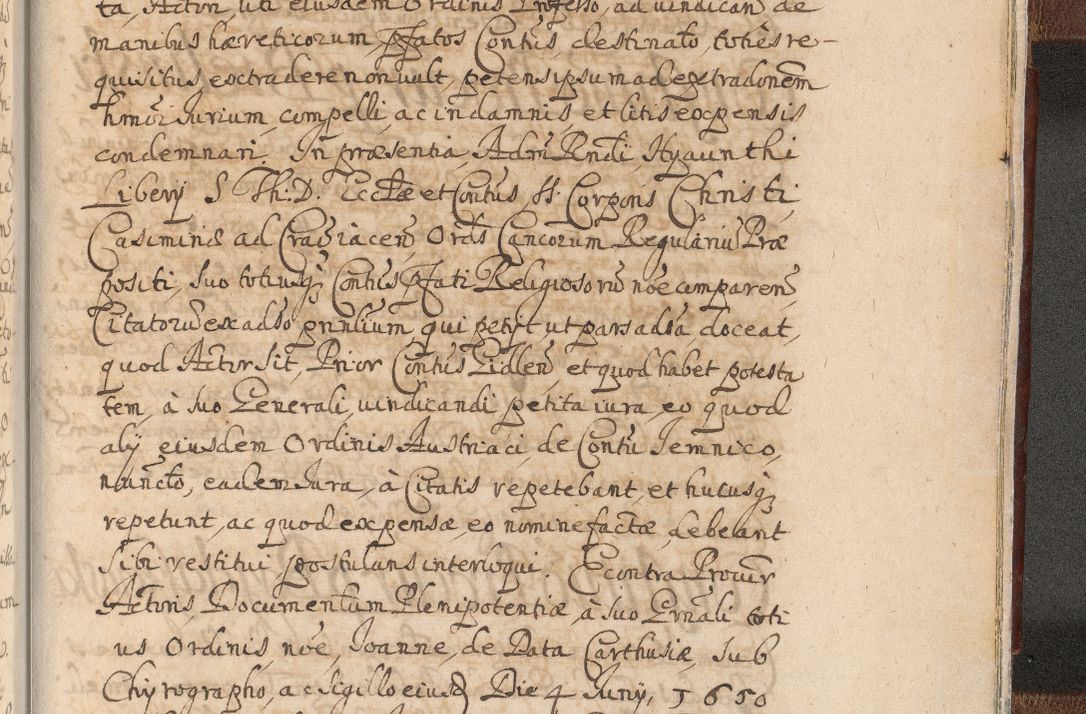 ta, Actor, uti eiusdem Ordinis Professo, ad uindican de
manibus hæreticorum, pfatos Contus destinato, toties re-
quisitus, extradere non uult, petens ipsum ad extradonem
hmoi Iurium, compelli, ac in damnis, et litis expensis
condemnari. In præsentia, Admi Rndi, Hyacinthi
Liberij S. Th: D. Ecclæ et Contus, SS. Corporis Christi,
Casimiriæ ad Crac iacen Ordis Cancorum Regulariū Præ
positi, suo totiusq Contus pfati Religiosorū nōe comparen,
Citatorū ex adso pntium, qui petijt, ut pars adsa, doceat,
quod Actor sit, Prior Contus Lidlen, et quod habet potesta
tem, à suo Generali, uindicandi, petita iura, eo quod
alij eiusdem Ordinis Austriaci, de Contu Iemnico,
nuncto, eadem Iura, à Citatis repetebant, et hucusq
repetunt, ac quod expensæ eo nomine factæ, debeant
sibi restitui postulans interloqui. Econtra Procur
Actoris Documentum Plenipotentiæ, à suo Grnali toti
us Ordinis, nōe, Ioanne, de Pata Carthusiæ, sub
Chyrographo, ac Sigillo eiusd Die 4 Iunij, 1650